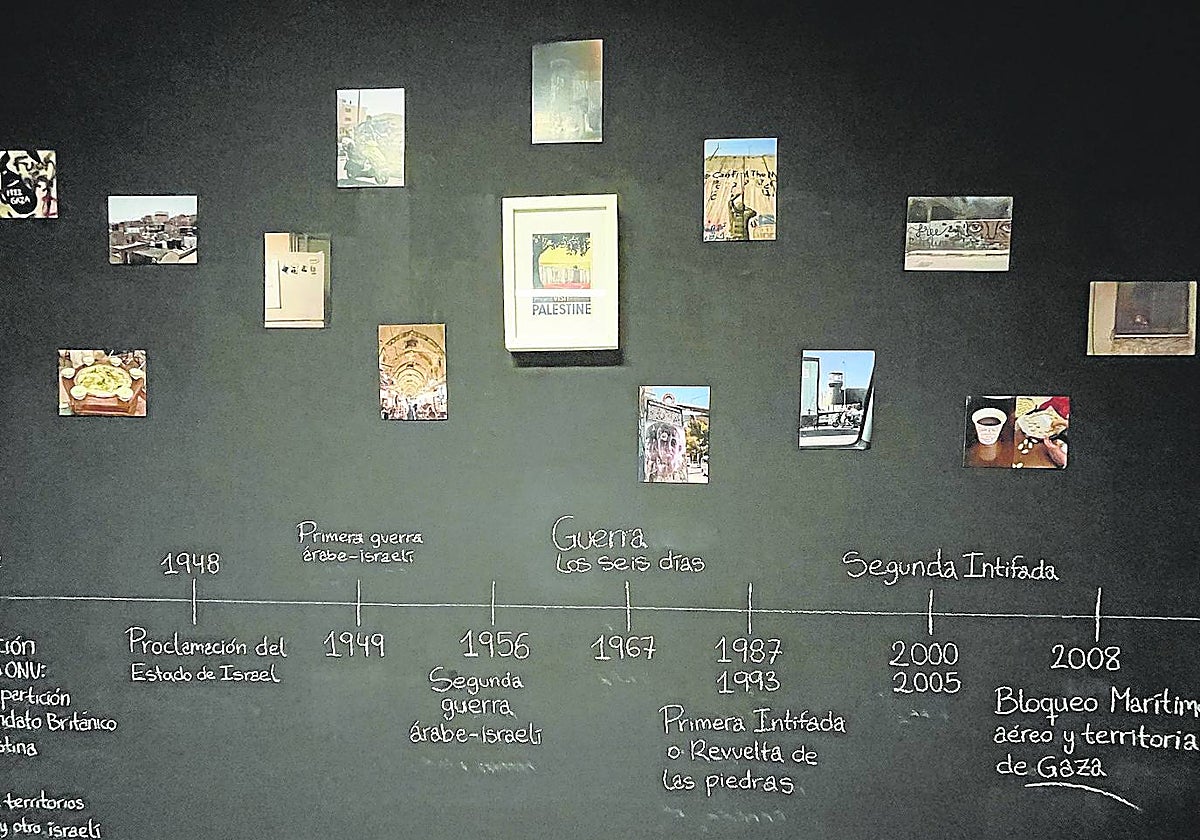 FREE
GAZA
VISIT
PALESTINE
free
1948
Primera guerra
árabe-israelí
Guerra
Los seis días
Segunda Intifada
ción
ONU:
partición
ndato Británico
stina
territorios
y otro israelí
Proclamación del
Estado de Israel
1949
1956
Segunda
guerra
árabe-israelí
1967
1987
1993
Primera Intifada
o Revuelta de
las piedras
2000
2005
2008
Bloqueo Marítimo
aéreo y territorial
de Gaza